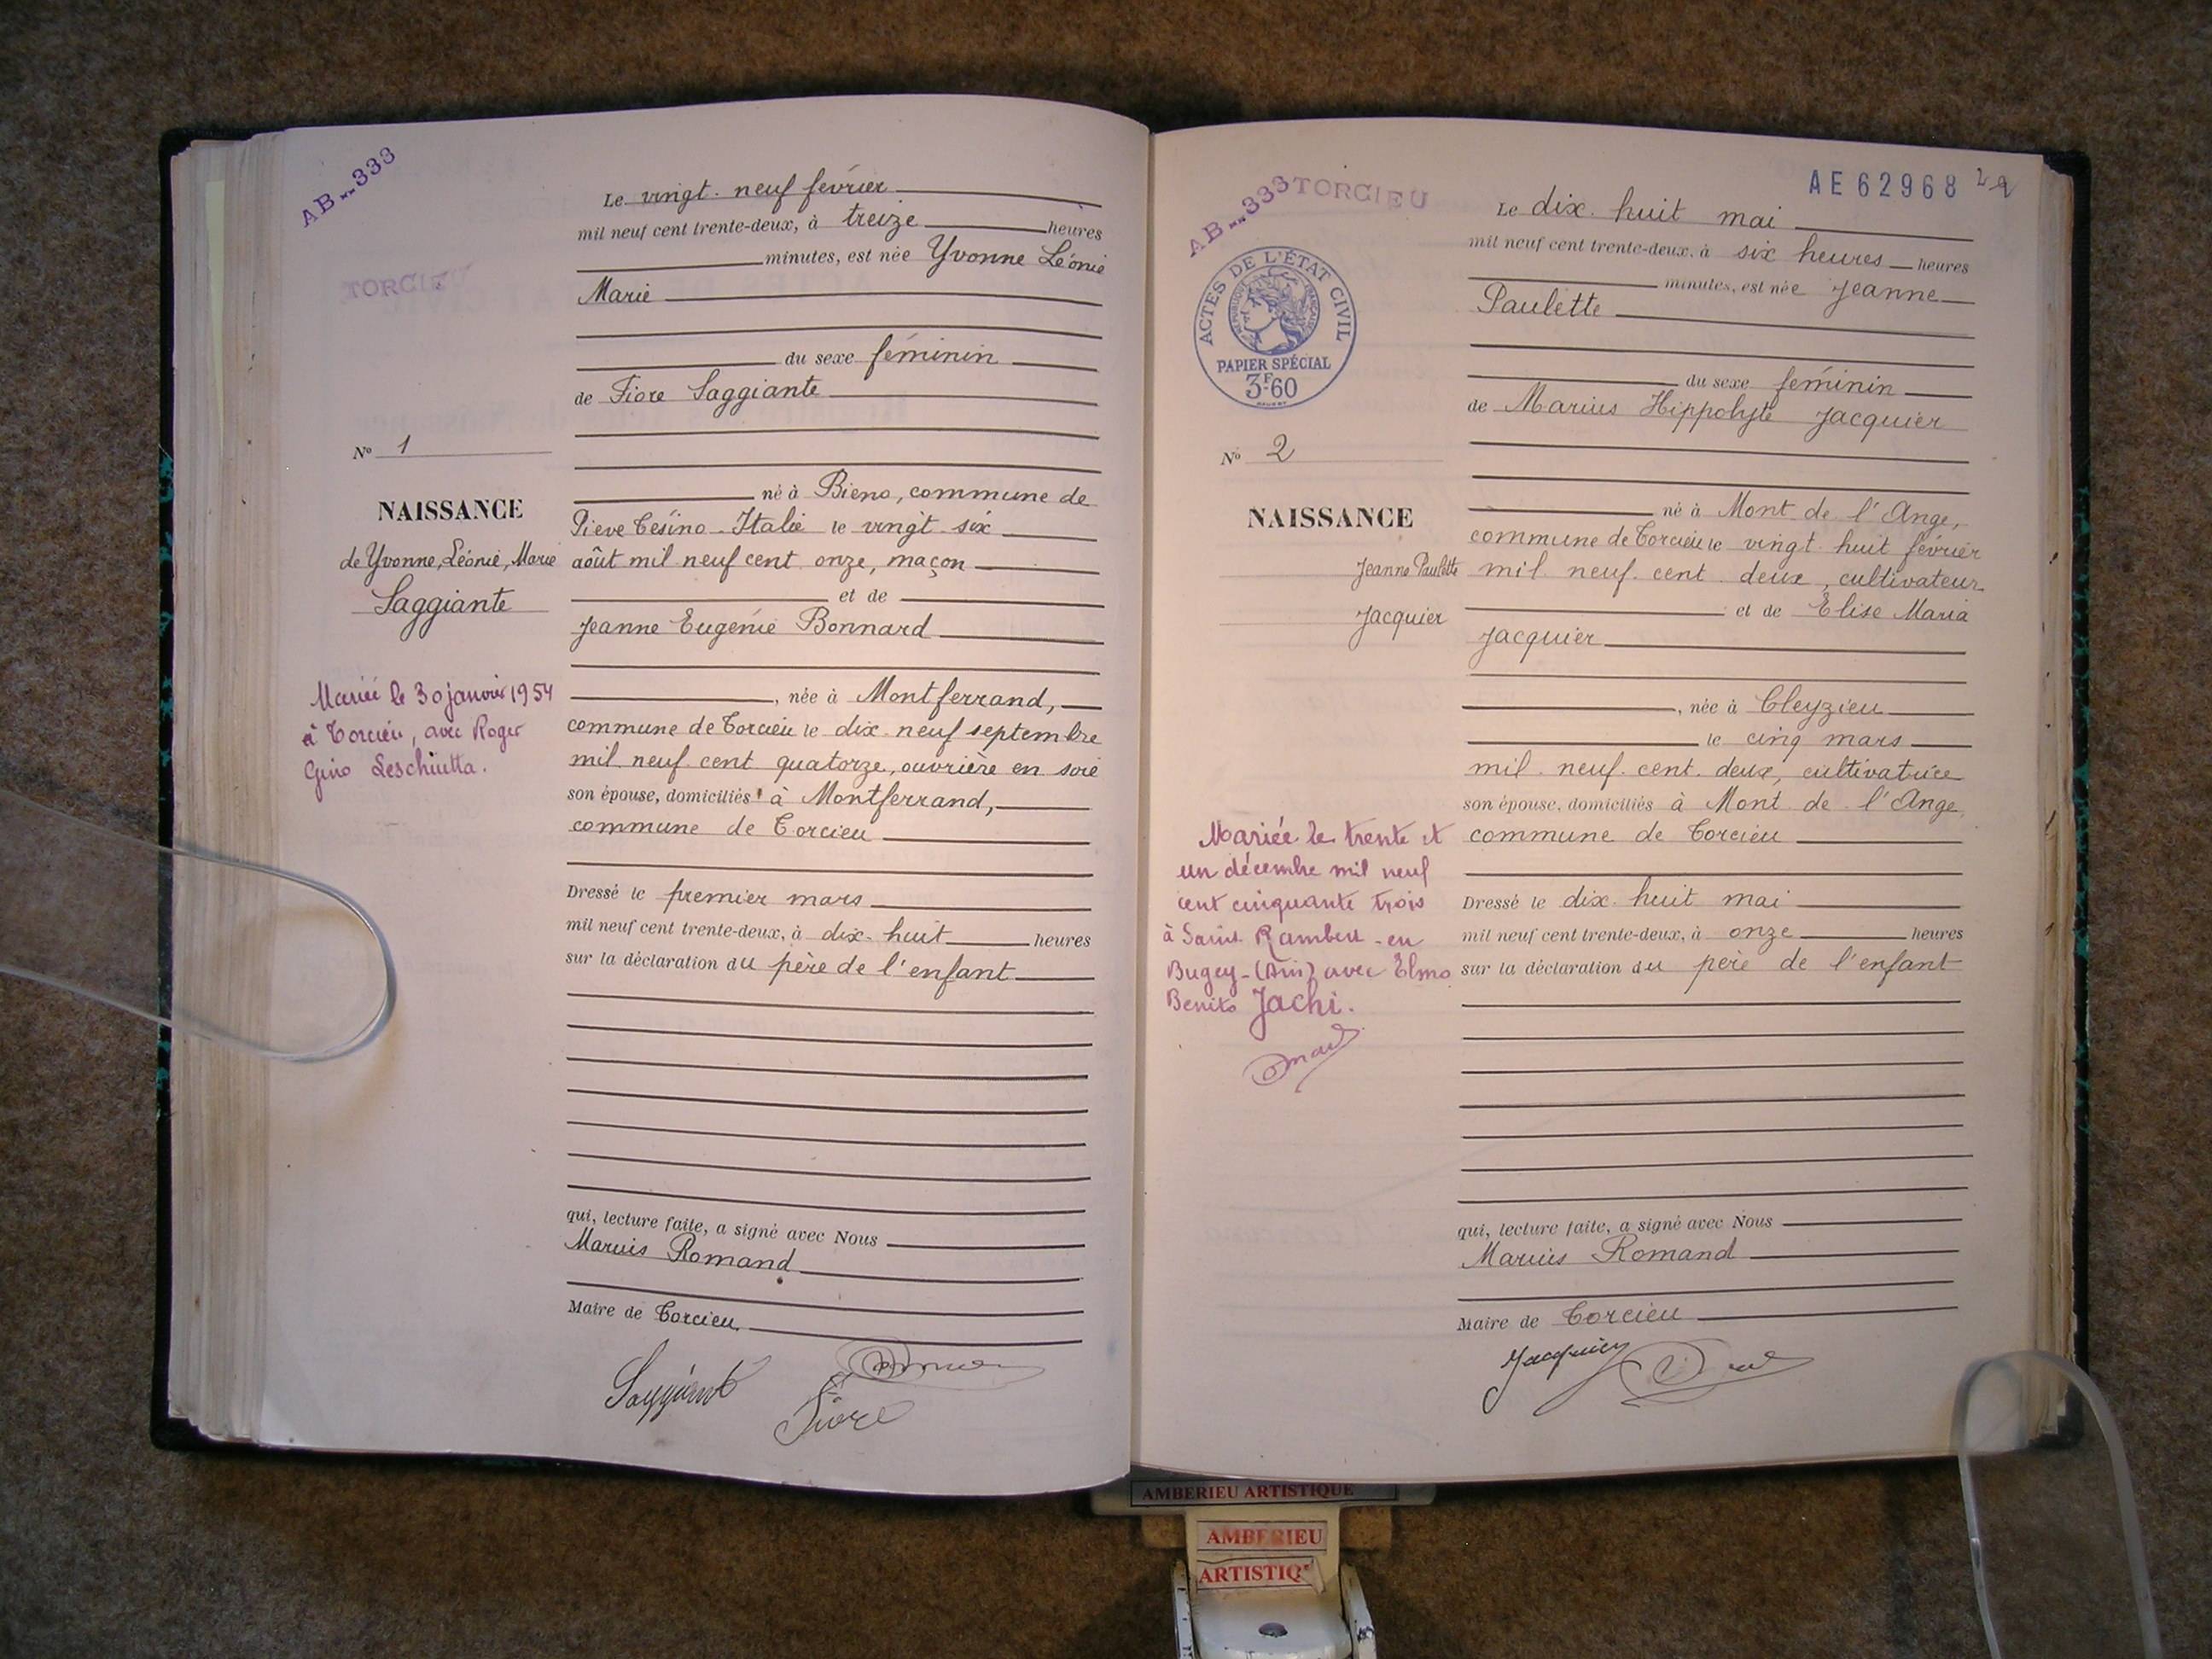 AB - 333
TORCIEU
Le vingt-neuf février
mil neuf cent trente-deux, à treize heures
minutes, est née Yvonne Léonie
Marie
du sexe féminin
de Fiore Saggiante
N° 1
né à Bieno, commune de
Pieve Tesino - Italie le vingt-six
août mil neuf cent onze, maçon
et de
Jeanne Eugénie Bonnard
NAISSANCE
de Yvonne, Léonie, Marie
Saggiante
Mariée le 30 janvier 1954
à Torcieu, avec Roger
Gino Leschiutta.
, née à Montferrand,
commune de Torcieu le dix-neuf septembre
mil neuf cent quatorze, ouvrière en soie
son épouse, domiciliés à Montferrand,
commune de Torcieu
Dressé le premier mars
mil neuf cent trente-deux, à dix-huit heures
sur la déclaration du père de l'enfant
qui, lecture faite, a signé avec Nous
Marius Romand
Maire de Torcieu.
Saggiante
Fiore
AB - 333 TORCIEU
AE 62968
ACTES DE L'ÉTAT CIVIL
RÉPUBLIQUE FRANÇAISE
PAPIER SPÉCIAL
3F60
Le dix-huit mai
mil neuf cent trente-deux, à six heures heures
minutes, est née Jeanne
Paulette
du sexe féminin
de Marius Hippolyte Jacquier
N° 2
né à Mont de l'Ange,
commune de Torcieu le vingt-huit février
mil neuf cent deux, cultivateur
et de Elise Maria
Jacquier
NAISSANCE
Jeanne Paulette
Jacquier
, née à Cleyzieu
le cinq mars
mil neuf cent deux, cultivatrice
son épouse, domiciliés à Mont de l'Ange
commune de Torcieu
Mariée le trente et
un décembre mil neuf
cent cinquante trois
à Saint-Rambert-en
Bugey-(Ain) avec Elmo
Benito Jachi.
Dressé le dix-huit mai
mil neuf cent trente-deux, à onze heures
sur la déclaration du père de l'enfant
qui, lecture faite, a signé avec Nous
Marius Romand
Maire de Torcieu
Jacquier
AMBERIEU ARTISTIQUE
AMBERIEU
ARTISTIQ